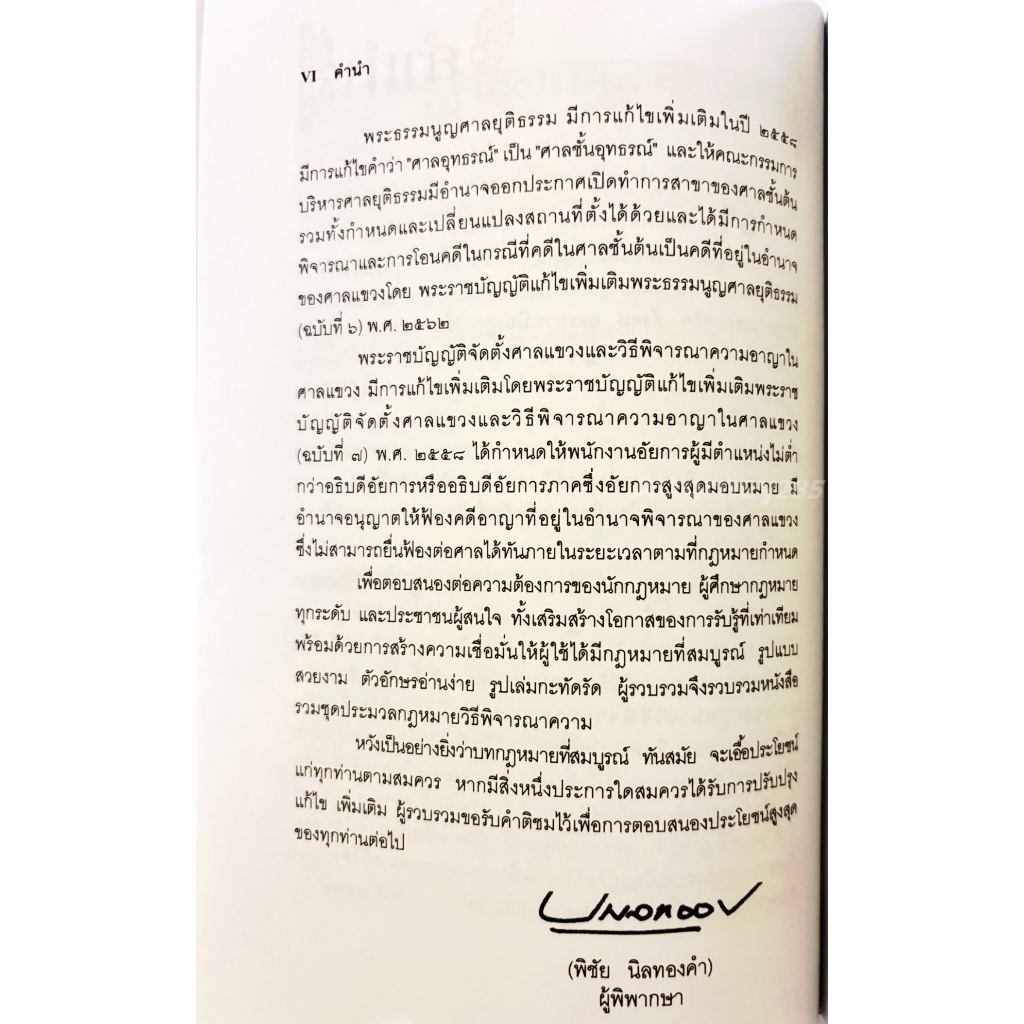 VI คำนำ
พระธรรมนูญศาลยุติธรรม มีการแก้ไขเพิ่มเติมในปี ๒๕๕๘
มีการแก้ไขคำว่า "ศาลอุทธรณ์" เป็น "ศาลชั้นอุทธรณ์" และให้คณะกรรมการ
บริหารศาลยุติธรรมมีอำนาจออกประกาศเปิดทำการสาขาของศาลชั้นต้น
รวมทั้งกำหนดและเปลี่ยนแปลงสถานที่ตั้งได้ด้วยและได้มีการกำหนด
พิจารณาและการโอนคดีในกรณีที่คดีในศาลชั้นต้นเป็นคดีที่อยู่ในอำนาจ
ของศาลแขวงโดย พระราชบัญญัติแก้ไขเพิ่มเติมพระธรรมนูญศาลยุติธรรม
(ฉบับที่ ๖) พ.ศ. ๒๕๖๒
พระราชบัญญัติจัดตั้งศาลแขวงและวิธีพิจารณาความอาญาใน
ศาลแขวง มีการแก้ไขเพิ่มเติมโดยพระราชบัญญัติแก้ไขเพิ่มเติมพระราช
บัญญัติจัดตั้งศาลแขวงและวิธีพิจารณาความอาญาในศาลแขวง
(ฉบับที่ ๗) พ.ศ. ๒๕๕๘ ได้กำหนดให้พนักงานอัยการผู้มีตำแหน่งไม่ต่ำ
กว่าอธิบดีอัยการหรืออธิบดีอัยการภาคซึ่งอัยการสูงสุดมอบหมาย มี
อำนาจอนุญาตให้ฟ้องคดีอาญาที่อยู่ในอำนาจพิจารณาของศาลแขวง
ซึ่งไม่สามารถยื่นฟ้องต่อศาลได้ทันภายในระยะเวลาตามที่กฎหมายกำหนด
เพื่อตอบสนองต่อความต้องการของนักกฎหมาย ผู้ศึกษากฎหมาย
ทุกระดับ และประชาชนผู้สนใจ ทั้งเสริมสร้างโอกาสของการรับรู้ที่เท่าเทียม
พร้อมด้วยการสร้างความเชื่อมั่นให้ผู้ใช้ได้มีกฎหมายที่สมบูรณ์ รูปแบบ
สวยงาม ตัวอักษรอ่านง่าย รูปเล่มกะทัดรัด ผู้รวบรวมจึงรวบรวมหนังสือ
รวมชุดประมวลกฎหมายวิธีพิจารณาความ
หวังเป็นอย่างยิ่งว่าบทกฎหมายที่สมบูรณ์ ทันสมัย จะเอื้อประโยชน์
แก่ทุกท่านตามสมควร หากมีสิ่งหนึ่งประการใดสมควรได้รับการปรับปรุง
แก้ไข เพิ่มเติม ผู้รวบรวมขอรับคำติชมไว้เพื่อการตอบสนองประโยชน์สูงสุด
ของทุกท่านต่อไป
(พิชัย นิลทองคำ)
ผู้พิพากษา